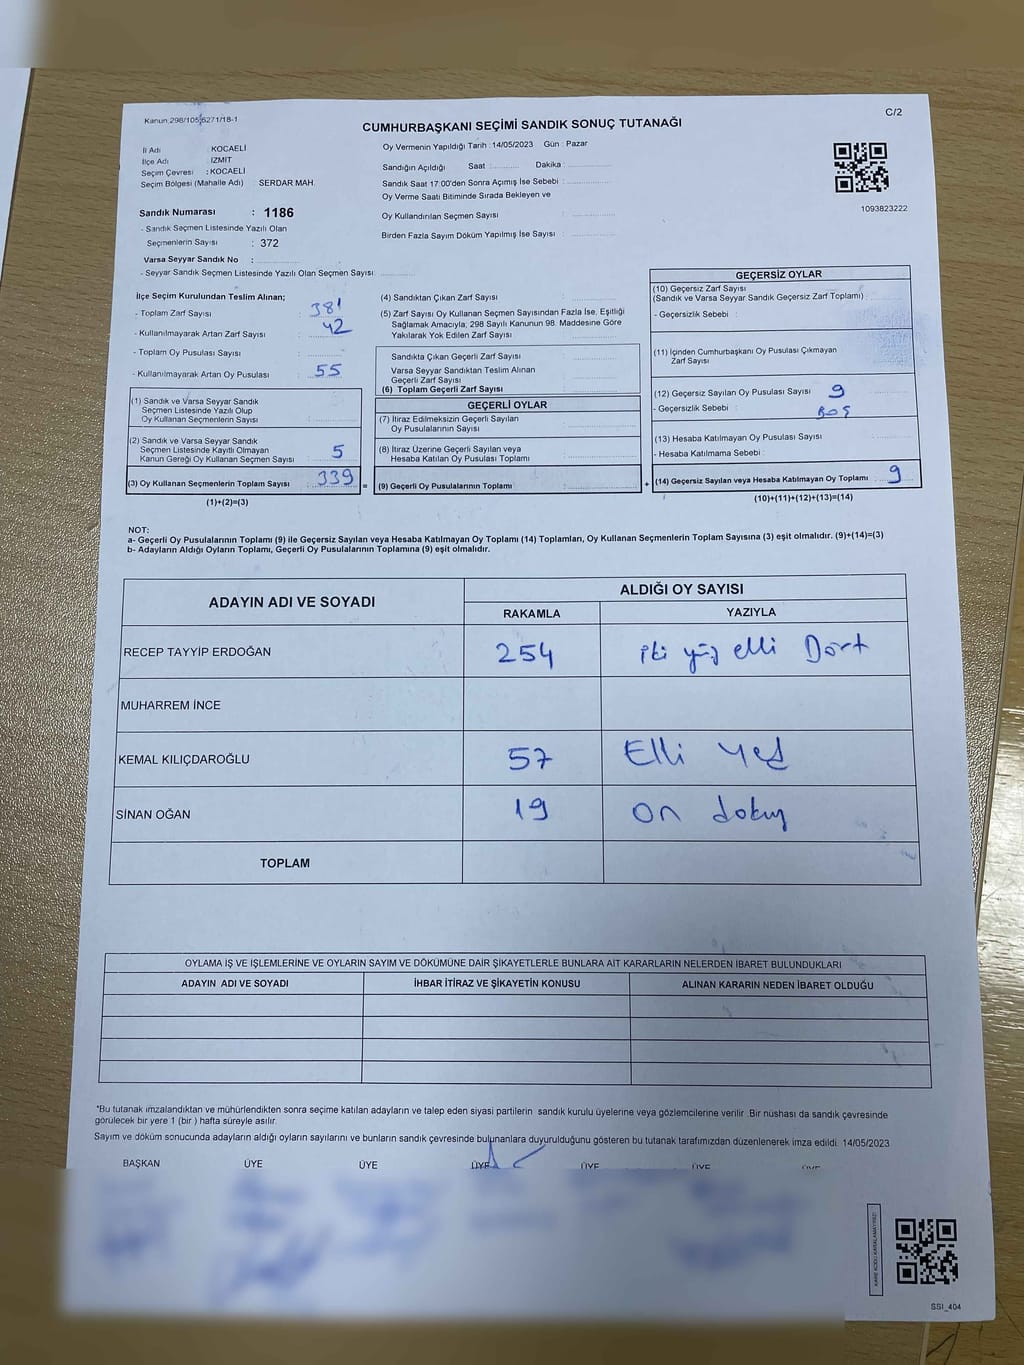 Kanun 298/105,6271/18-1
C/2
CUMHURBAŞKANI SEÇİMİ SANDIK SONUÇ TUTANAĞI
İl Adı : KOCAELİ
İlçe Adı : İZMİT
Seçim Çevresi : KOCAELİ
Seçim Bölgesi (Mahalle Adı) SERDAR MAH.
Sandık Numarası : 1186
- Sandık Seçmen Listesinde Yazılı Olan
Seçmenlerin Sayısı : 372
Varsa Seyyar Sandık No :
- Seyyar Sandık Seçmen Listesinde Yazılı Olan Seçmen Sayısı:
Oy Vermenin Yapıldığı Tarih : 14/05/2023 Gün : Pazar
Sandığın Açıldığı Saat : Dakika :
Sandık Saat 17:00'den Sonra Açımış İse Sebebi :
Oy Verme Saati Bitiminde Sırada Bekleyen ve
Oy Kullandırılan Seçmen Sayısı :
Birden Fazla Sayım Döküm Yapılmış İse Sayısı :
1093823222
İlçe Seçim Kurulundan Teslim Alınan;
- Toplam Zarf Sayısı : 381
- Kullanılmayarak Artan Zarf Sayısı : 42
- Toplam Oy Pusulası Sayısı :
- Kullanılmayarak Artan Oy Pusulası : 55
(1) Sandık ve Varsa Seyyar Sandık
Seçmen Listesinde Yazılı Olup
Oy Kullanan Seçmenlerin Sayısı :
(2) Sandık ve Varsa Seyyar Sandık
Seçmen Listesinde Kayıtlı Olmayan
Kanun Gereği Oy Kullanan Seçmen Sayısı : 5
(3) Oy Kullanan Seçmenlerin Toplam Sayısı : 339 =
(1)+(2)=(3)
(4) Sandıktan Çıkan Zarf Sayısı :
(5) Zarf Sayısı Oy Kullanan Seçmen Sayısından Fazla İse, Eşitliği
Sağlamak Amacıyla, 298 Sayılı Kanunun 98. Maddesine Göre
Yakılarak Yok Edilen Zarf Sayısı :
Sandıkta Çıkan Geçerli Zarf Sayısı :
Varsa Seyyar Sandıktan Teslim Alınan
Geçerli Zarf Sayısı :
(6) Toplam Geçerli Zarf Sayısı :
GEÇERLİ OYLAR
(7) İtiraz Edilmeksizin Geçerli Sayılan
Oy Pusulalarının Sayısı :
(8) İtiraz Üzerine Geçerli Sayılan veya
Hesaba Katılan Oy Pusulası Toplamı :
(9) Geçerli Oy Pusulalarının Toplamı : +
GEÇERSİZ OYLAR
(10) Geçersiz Zarf Sayısı
(Sandık ve Varsa Seyyar Sandık Geçersiz Zarf Toplamı) :
- Geçersizlik Sebebi :
(11) İçinden Cumhurbaşkanı Oy Pusulası Çıkmayan
Zarf Sayısı :
(12) Geçersiz Sayılan Oy Pusulası Sayısı : 9
- Geçersizlik Sebebi : BOŞ
(13) Hesaba Katılmayan Oy Pusulası Sayısı :
- Hesaba Katılmama Sebebi :
(14) Geçersiz Sayılan veya Hesaba Katılmayan Oy Toplamı : 9
(10)+(11)+(12)+(13)=(14)
NOT:
a- Geçerli Oy Pusulalarının Toplamı (9) ile Geçersiz Sayılan veya Hesaba Katılmayan Oy Toplamı (14) Toplamları, Oy Kullanan Seçmenlerin Toplam Sayısına (3) eşit olmalıdır. (9)+(14)=(3)
b- Adayların Aldığı Oyların Toplamı, Geçerli Oy Pusulalarının Toplamına (9) eşit olmalıdır.
ADAYIN ADI VE SOYADI ALDIĞI OY SAYISI
RAKAMLA YAZIYLA
RECEP TAYYİP ERDOĞAN 254 iki yüz elli Dört
MUHARREM İNCE
KEMAL KILIÇDAROĞLU 57 Elli yedi
SİNAN OĞAN 19 on dokuz
TOPLAM
OYLAMA İŞ VE İŞLEMLERİNE VE OYLARIN SAYIM VE DÖKÜMÜNE DAİR ŞİKAYETLERLE BUNLARA AİT KARARLARIN NELERDEN İBARET BULUNDUKLARI
ADAYIN ADI VE SOYADI İHBAR İTİRAZ VE ŞİKAYETİN KONUSU ALINAN KARARIN NEDEN İBARET OLDUĞU
*Bu tutanak imzalandıktan ve mühürlendikten sonra seçime katılan adayların ve talep eden siyasi partilerin sandık kurulu üyelerine veya gözlemcilerine verilir .Bir nüshası da sandık çevresinde
görülecek bir yere 1 (bir ) hafta süreyle asılır.
Sayım ve döküm sonucunda adayların aldığı oyların sayılarını ve bunların sandık çevresinde bulunanlara duyurulduğunu gösteren bu tutanak tarafımızdan düzenlenerek imza edildi. 14/05/2023
BAŞKAN ÜYE ÜYE ÜYE ÜYE ÜYE ÜYE
KARE KODU KARALAMAYINIZ!
SSI_404